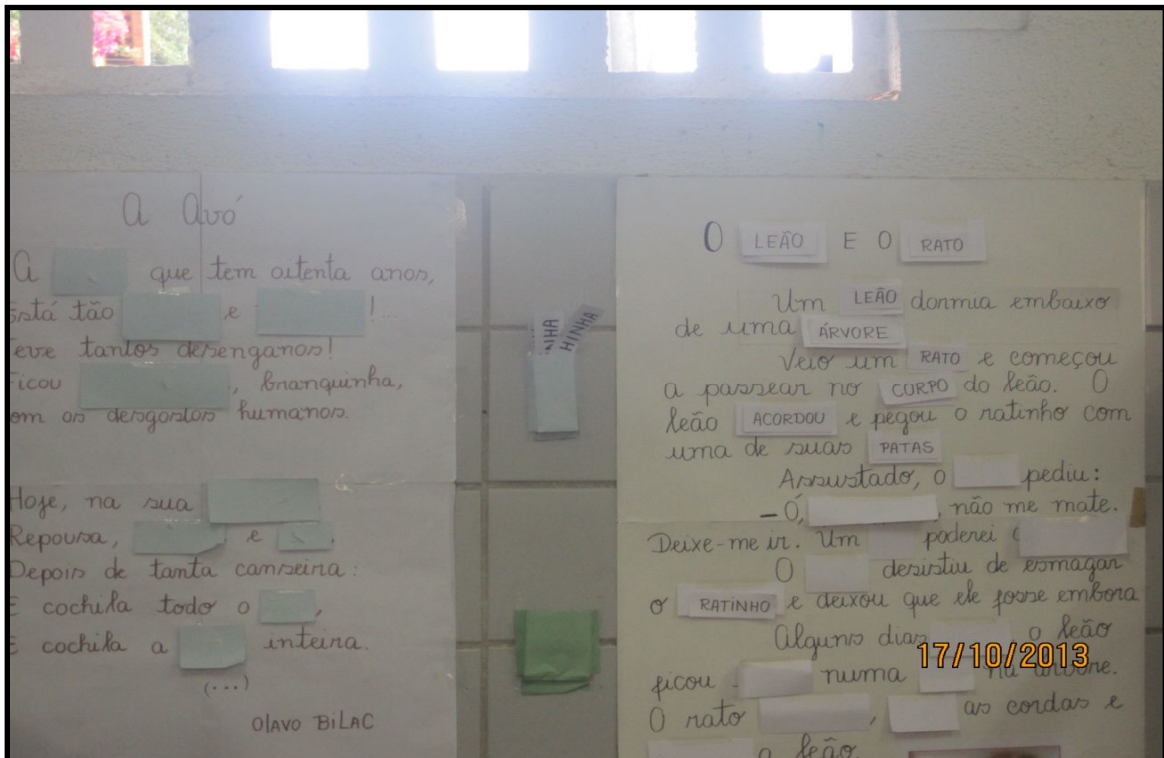 A Avó
A que tem oitenta anos,
Está tão e !...
eve tantos desenganos!
icou , branquinha,
om os desgostos humanos.
Hoje, na sua
Repousa, e
Depois de tanta canseira:
E cochila todo o ,
E cochila a inteira.
(...)
OlAVO BiLAC
INHA
HINHA
O LEÃO E O RATO
Um LEÃO dormia embaixo
de uma ÁRVORE
Veio um RATO e começou
a passear no CORPO do leão. O
leão ACORDOU e pegou o ratinho com
uma de suas PATAS
Assustado, o pediu:
- Ó, , não me mate.
Deixe-me ir. Um poderei
O desistiu de esmagar
o RATINHO e deixou que ele fosse embora
Alguns dias o leão
ficou numa na árvore.
O rato , as cordas e
o leão.
17/10/2013